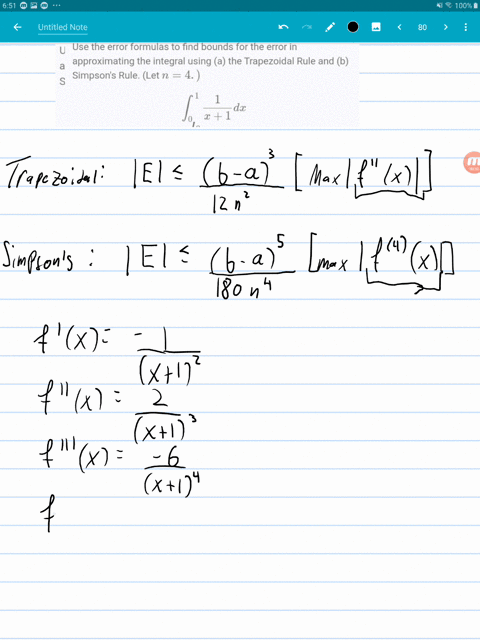 6:51 100%
Untitled Note 80
U Use the error formulas to find bounds for the error in
a approximating the integral using (a) the Trapezoidal Rule and (b)
S Simpson's Rule. (Let n = 4.)
∫_0^1 1/(x+1) dx
Trapezoidal: |E| ≤ (b-a)^3/(12n^2) [Max|f''(x)|]
Simpson's: |E| ≤ (b-a)^5/(180n^4) [max|f^(4)(x)|]
f'(x) = -1/(x+1)^2
f''(x) = 2/(x+1)^3
f'''(x) = -6/(x+1)^4
f